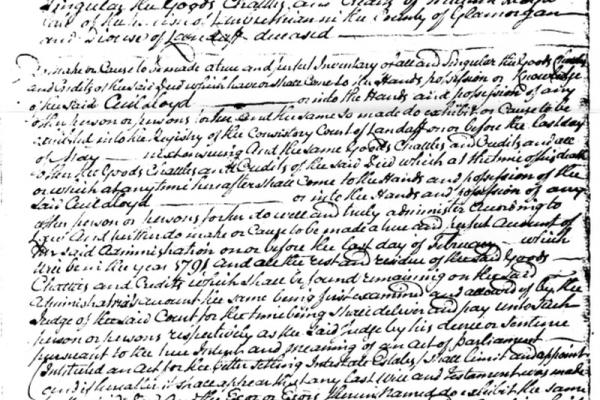 Singular the Goods Chattles and Credits of William Lloyd
late of the Parish of in the County of Glamorgan
and Diocese of Landaff deceased
Do make or Cause to be made a true and perfect Inventory of all and Singular the Goods Chattles
and Credits of the said Decd which have or shall come to the Hands possession or Knowledge
of her said Cecil Lloyd or into the Hands and possession of any
other person or persons for her and the same so made do exhibit or Cause to be
exhibited into the Registry of the Consistory Court of Landaff on or before the last day
of May next ensuing And the same Goods Chattles and Credits and all
other the Goods Chattles and Credits of the said Decd which at the time of his death
or which at any time hereafter shall come to the Hands and possession of the
said Cecil Lloyd or into the Hands and possession of any
other person or persons for her do well and truly administer According to
Law And further do make or Cause to be made a true and perfect Account of
Her said Administration on or before the last day of February which
will be in the year 1791 and all the rest and residue of the said Goods
Chattles and Credits which shall be found remaining on the said
Administratrix account the same being first examined and allowed of by the
Judge of the said Court for the time being shall deliver and pay unto such
person or persons respectively as the said Judge by his decree or Sentence
pursuant to the true Intent and meaning of an Act of Parliament
(Intitled an Act for the better Settling Intestate Estates) shall limit and appoint
and if hereafter it shall appear that any Last Will and Testament was made
by the said Decd And the Exor or Exors therein named do exhibit the same